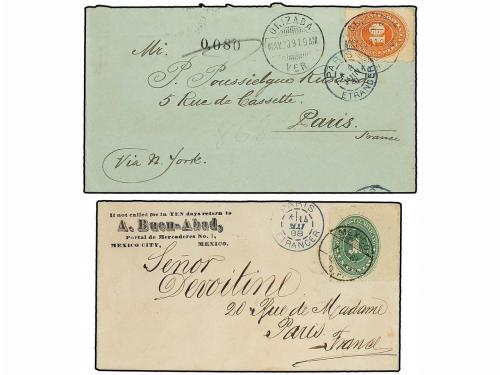 0.080
ORIZABA
MAY 20 91 9 AM
VER
10
Mr.
P. Poussielgue Rusand
5 Rue de Cassette.
Paris.
France
Via N. York.
PARIS
ETRANGER
If not called for in TEN days return to
A. Buen-Abad,
Portal de Mercaderes No. 1,
MEXICO CITY, MEXICO.
PARIS
MAI
88
ETRANGER
MEXICO
Señor
Devoitine
20 Rue de Madame
Paris.
France